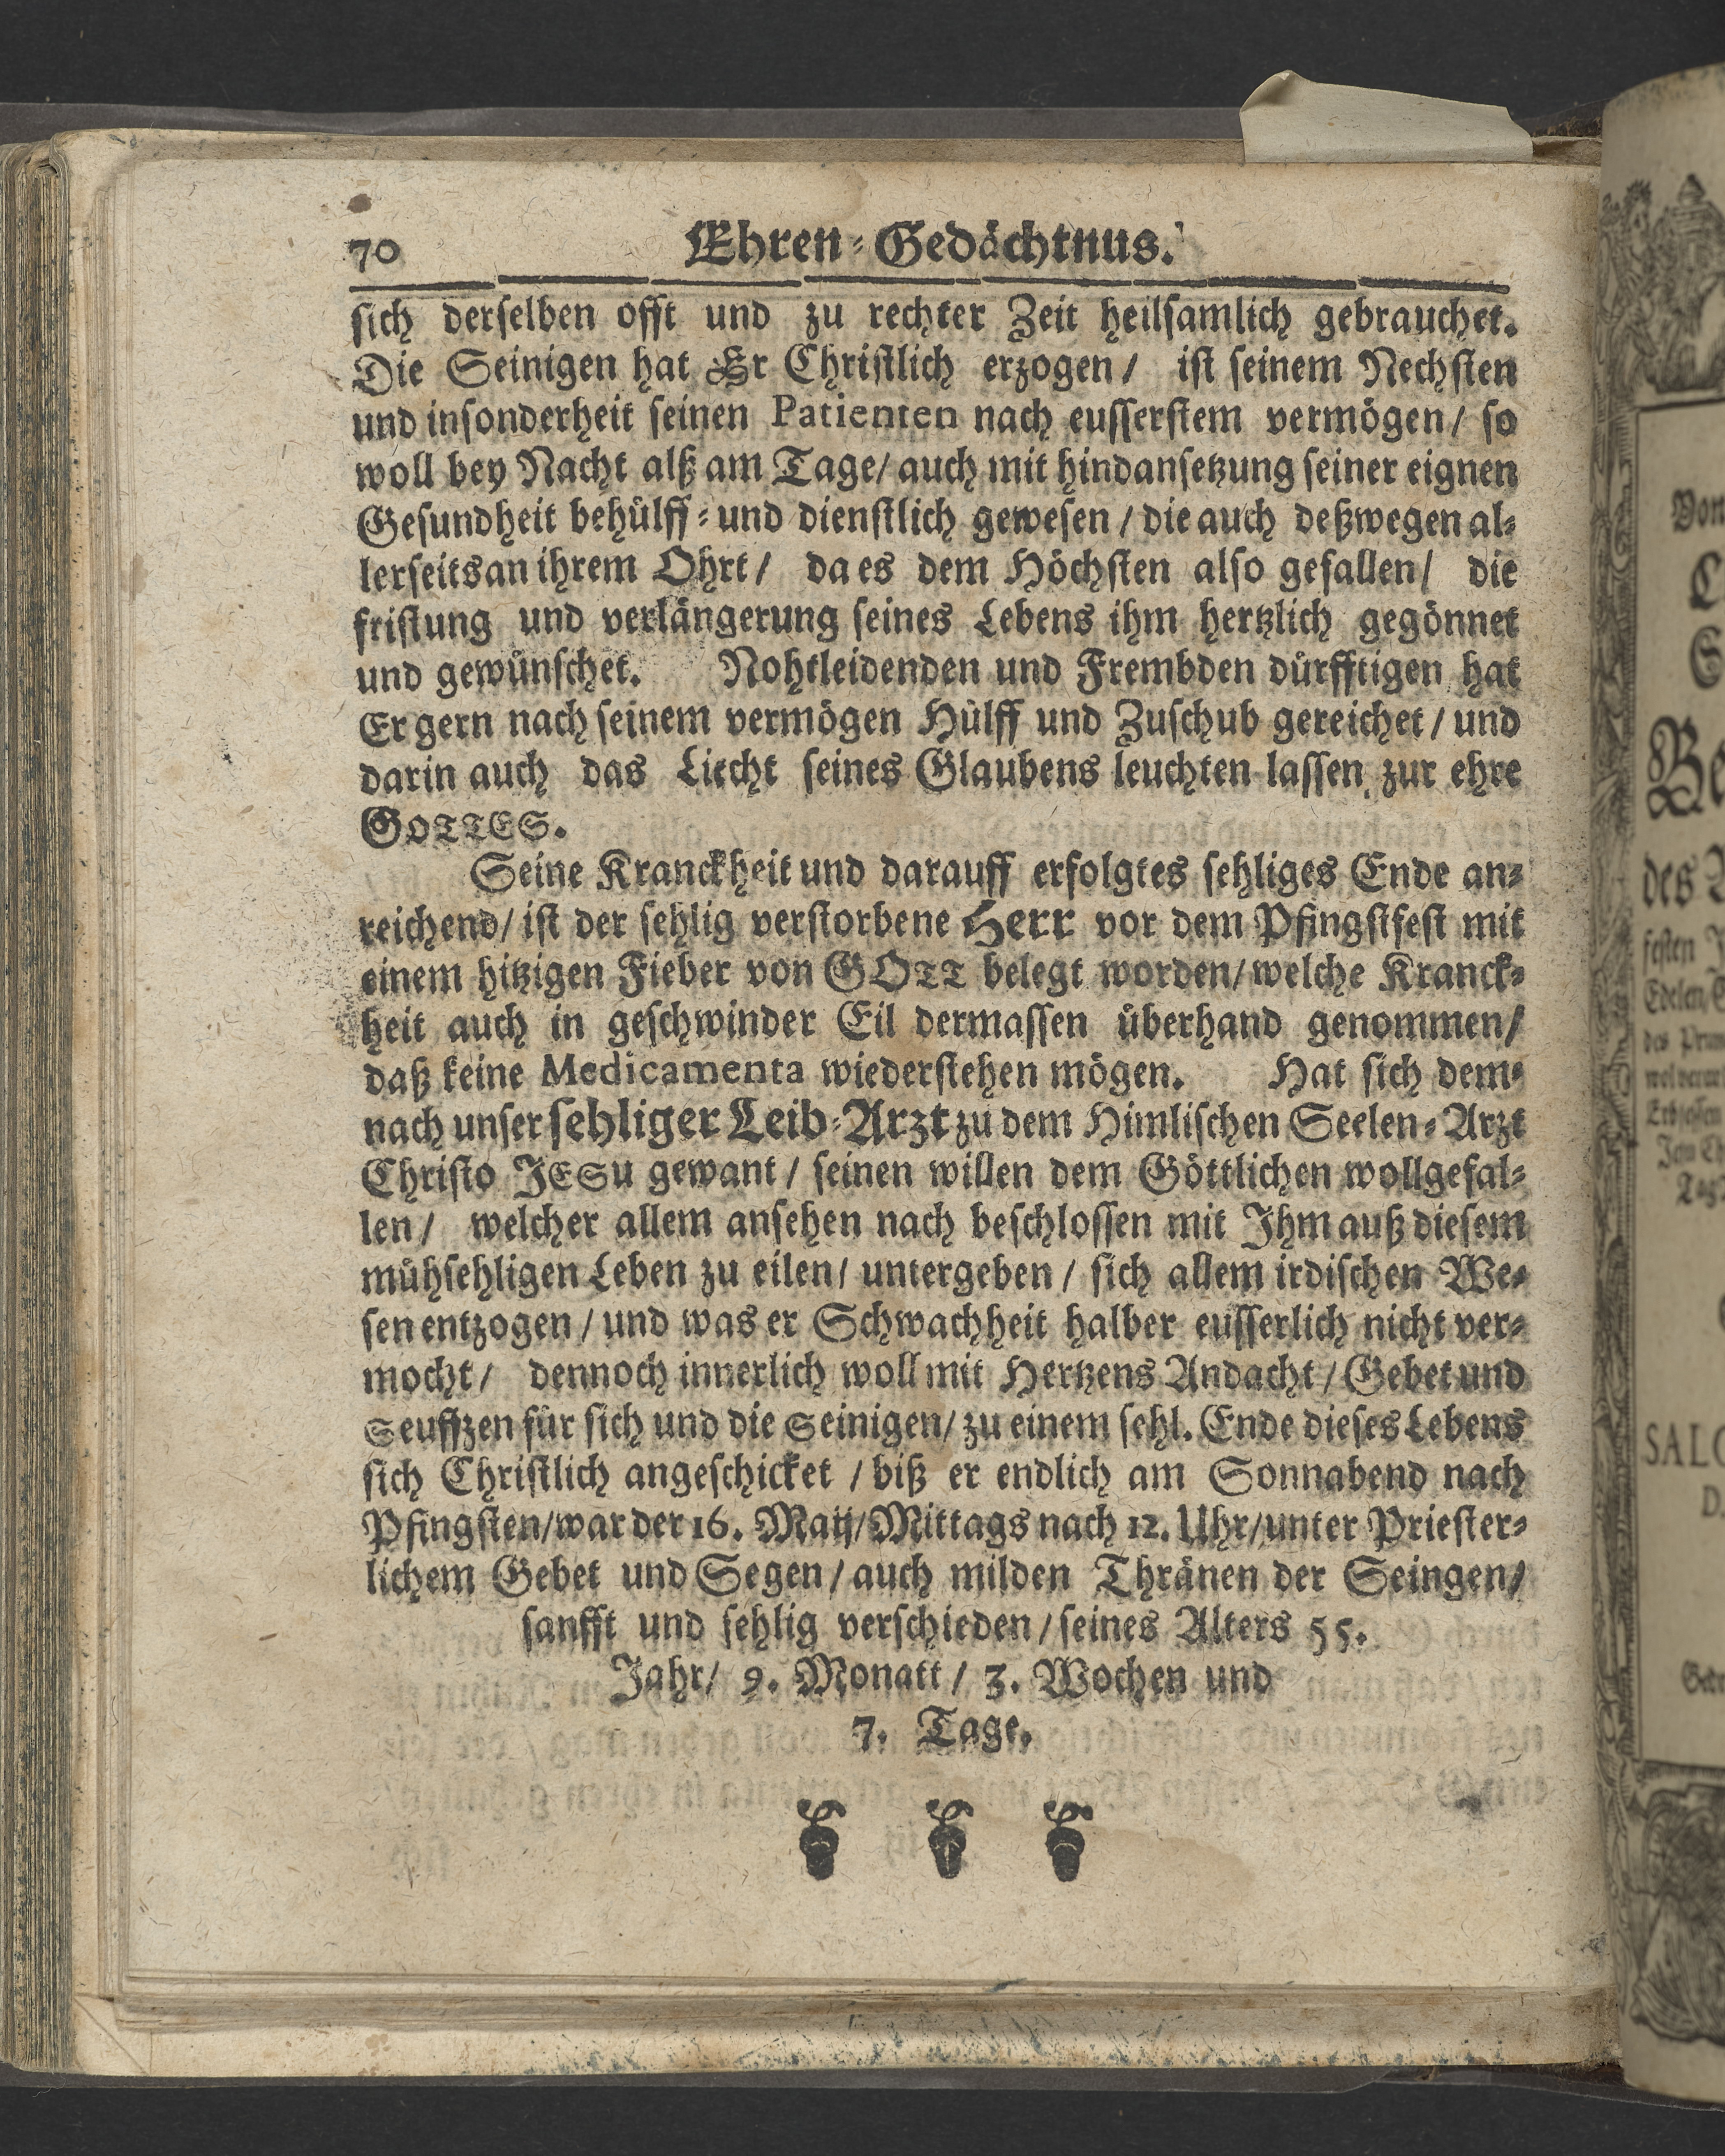 70 Ehren-Gedächtnus.
sich derselben offt und zu rechter Zeit heilsamlich gebrauchet.
Die Seinigen hat Er Christlich erzogen / ist seinem Nechsten
und insonderheit seinen Patienten nach eusserstem vermögen / so
woll bey Nacht alß am Tage / auch mit hindansetzung seiner eignen
Gesundheit behülff- und dienstlich gewesen / die auch deßwegen al-
lerseits an ihrem Ohrt / da es dem Höchsten also gefallen / die
fristung und verlängerung seines Lebens ihm hertzlich gegönnet
und gewünschet. Nohtleidenden und Frembden dürfftigen hat
Er gern nach seinem vermögen Hülff und Zuschub gereichet / und
darin auch das Liecht seines Glaubens leuchten lassen zur ehre
GOTTES.
Seine Kranckheit und darauff erfolgtes sehliges Ende an-
reichend / ist der sehlig verstorbene Herr vor dem Pfingstfest mit
einem hitzigen Fieber von GOTT belegt worden / welche Kranck-
heit auch in geschwinder Eil dermassen überhand genommen /
daß keine Medicamenta wiederstehen mögen. Hat sich dem-
nach unser sehliger Leib-Arzt zu dem Himlischen Seelen-Arzt
Christo JESu gewant / seinen willen dem Göttlichen wollgefal-
len / welcher allem ansehen nach beschlossen mit Ihm auß diesem
mühsehligen Leben zu eilen / untergeben / sich allem irdischen We-
sen entzogen / und was er Schwachheit halber eusserlich nicht ver-
mocht / dennoch innerlich woll mit Hertzens Andacht / Gebet und
Seuffzen für sich und die Seinigen / zu einem sehl. Ende dieses Lebens
sich Christlich angeschicket / biß er endlich am Sonnabend nach
Pfingsten / war der 16. Maij / Mittags nach 12. Uhr / unter Priester-
lichem Gebet und Segen / auch milden Thränen der Seingen /
sanfft und sehlig verschieden / seines Alters 55.
Jahr / 9. Monatt / 3. Wochen und
7. Tage.
des
festen
Edelen
SALO